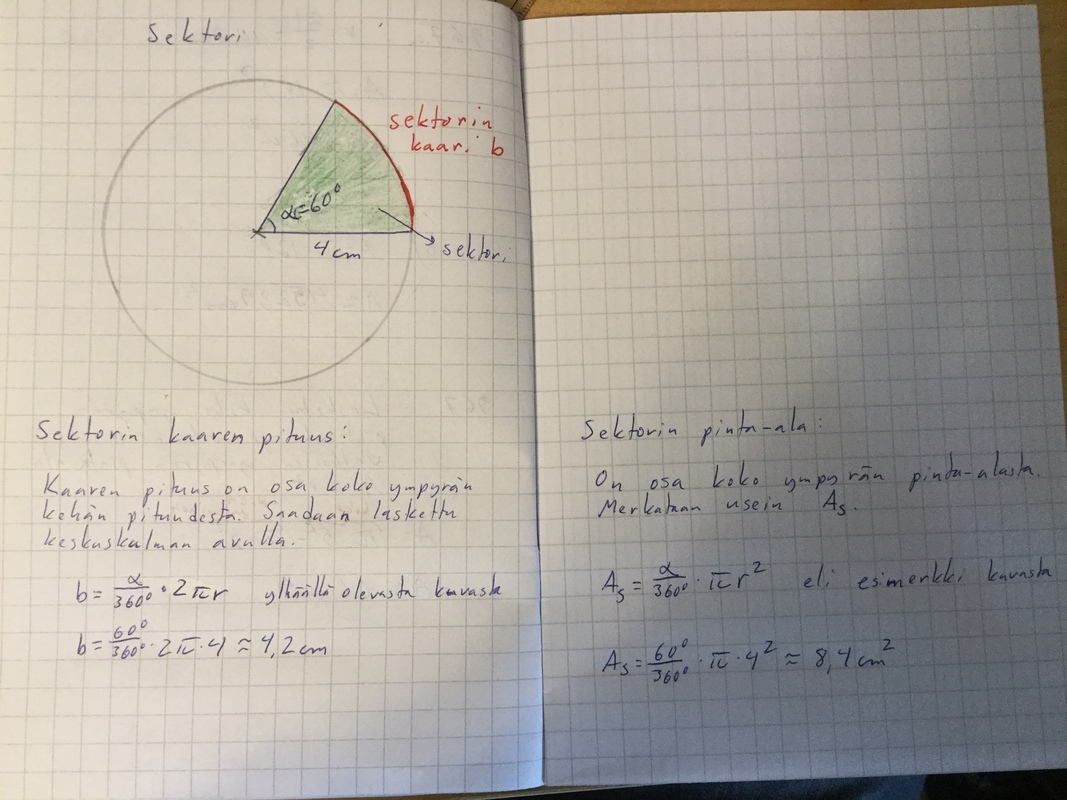 Sektori
sektorin
kaari b
α=60°
4cm
sektori
Sektorin kaaren pituus:
Kaaren pituus on osa koko ympyrän
kehän pituudesta. Saadaan laskettu
keskuskulman avulla.
b = α/360° · 2πr ylhäällä olevasta kuvasta
b = 60°/360° · 2π·4 ≈ 4,2cm
Sektorin pinta-ala:
On osa koko ympyrän pinta-alasta.
Merkataan usein As.
As = α/360° · πr² eli esimerkki kuvasta
As = 60°/360° · π · 4² ≈ 8,4cm²